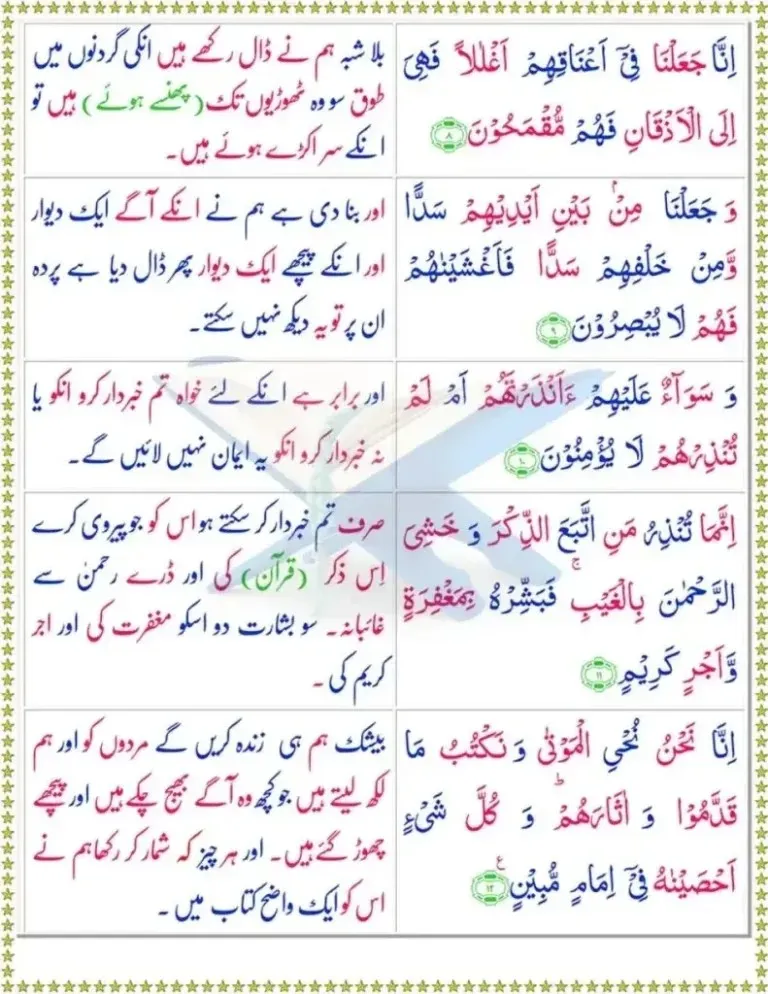 اِنَّا جَعَلْنَا فِیْۤ اَعْنَاقِهِمْ اَغْلٰلاً فَهِیَ
اِلَی الْاَذْقَانِ فَهُمْ مُّقْمَحُوْنَ ﴿۸﴾
بلا شبہ ہم نے ڈال رکھے ہیں انکی گردنوں میں
طوق سو وہ ٹھوڑیوں تک (پھنسے ہوئے) ہیں تو
انکے سر اکڑے ہوئے ہیں۔
وَ جَعَلْنَا مِنْۢ بَیْنِ اَیْدِیْهِمْ سَدًّا
وَّمِنْ خَلْفِهِمْ سَدًّا فَاَغْشَیْنٰهُمْ
فَهُمْ لَا یُبْصِرُوْنَ ﴿۹﴾
اور بنا دی ہے ہم نے انکے آگے ایک دیوار
اور انکے پیچھے ایک دیوار پھر ڈال دیا ہے پردہ
ان پر تو یہ دیکھ نہیں سکتے۔
وَ سَوَآءٌ عَلَیْهِمْ ءَاَنْذَرْتَهُمْ اَمْ لَمْ
تُنْذِرْهُمْ لَا یُؤْمِنُوْنَ ﴿۱۰﴾
اور برابر ہے انکے لئے خواہ تم خبردار کرو انکو یا
نہ خبردار کرو انکو یہ ایمان نہیں لائیں گے۔
اِنَّمَا تُنْذِرُ مَنِ اتَّبَعَ الذِّکْرَ وَ خَشِیَ
الرَّحْمٰنَ بِالْغَیْبِ ۚ فَبَشِّرْهُ بِمَغْفِرَةٍ
وَّاَجْرٍ کَرِیْمٍ ﴿۱۱﴾
صرف تم خبردار کر سکتے ہو اس کو جو پیروی کرے
اِس ذکر (قرآن) کی اور ڈرے رحمنٰ سے
غائبانہ۔ سو بشارت دو اسکو مغفرت کی اور اجر
کریم کی۔
اِنَّا نَحْنُ نُحْیِ الْمَوْتٰی وَ نَکْتُبُ مَا
قَدَّمُوْا وَ اٰثَارَهُمْ ؕ وَ کُلَّ شَیْءٍ
اَحْصَیْنٰهُ فِیْۤ اِمَامٍ مُّبِیْنٍ ﴿۱۲﴾ ع
بیشک ہم ہی زندہ کریں گے مردوں کو اور ہم
لکھ لیتے ہیں جو کچھ وہ آگے بھیج چکے ہیں اور پیچھے
چھوڑ گئے ہیں۔ اور ہر چیز کہ شمار کر رکھا ہم نے
اس کو ایک واضح کتاب میں۔